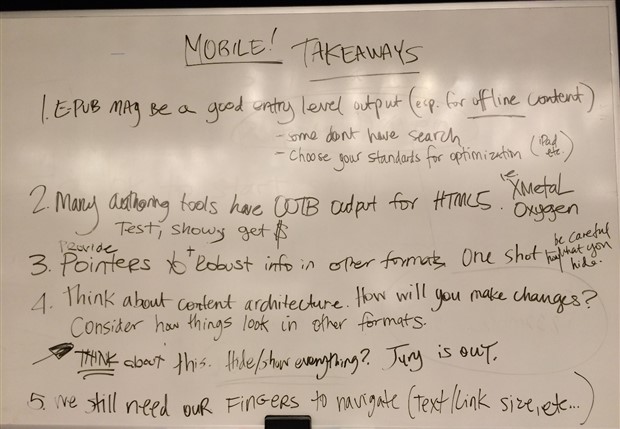 MOBILE! TAKEAWAYS
1. E-PUB MAY BE a good entry level output (esp. for offline content)
- some dont have search
- Choose your standards for optimization (iPad etc.)
2. Many authoring tools have OOTB output for HTML5. ie XMetaL
Oxygen
Test, show, get $
Provide
3. Pointers to + Robust info in other formats One shot be careful what you hide.
4. Think about content architecture. How will you make changes?
Consider how things look in other formats.
THINK about this. Hide/show everything? Jury is out.
5. We still need our FINGERS to navigate (Text/Link size, etc...)